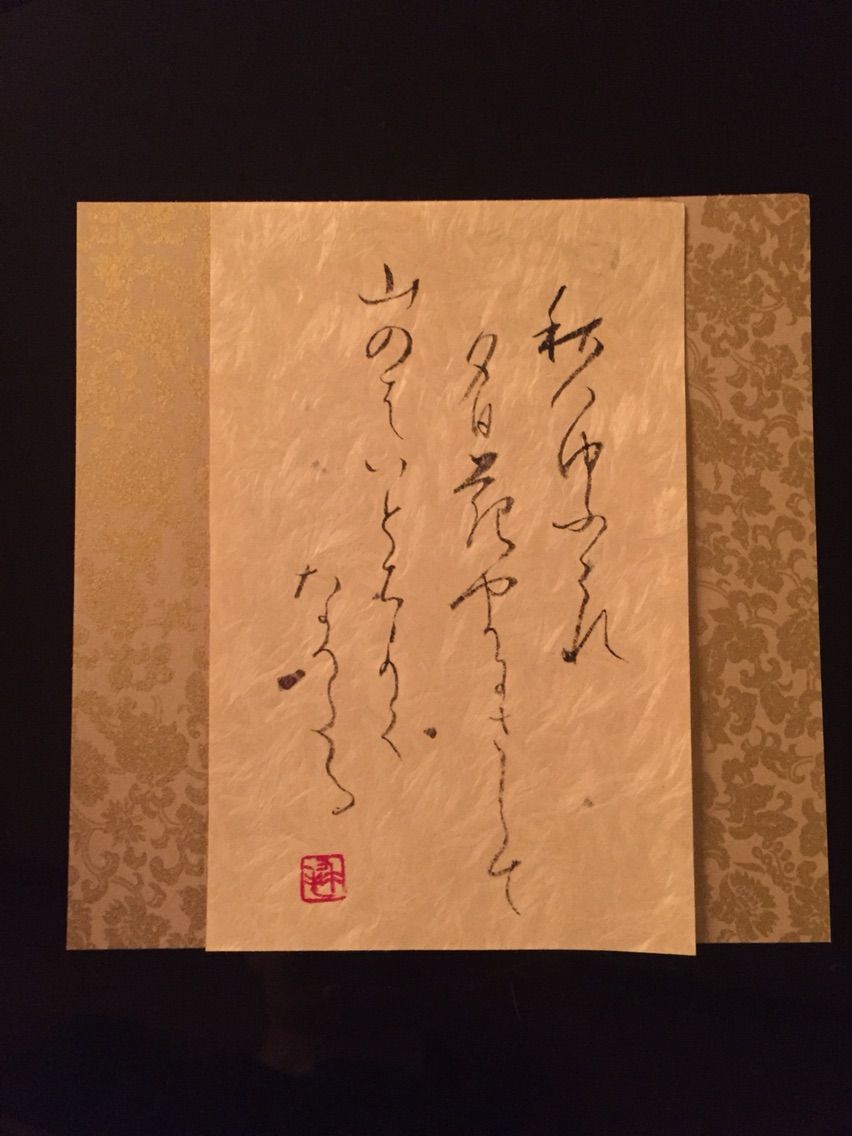 秋ハゆふくれ
夕日花やかにさして
山のはいとちかく
なりたる